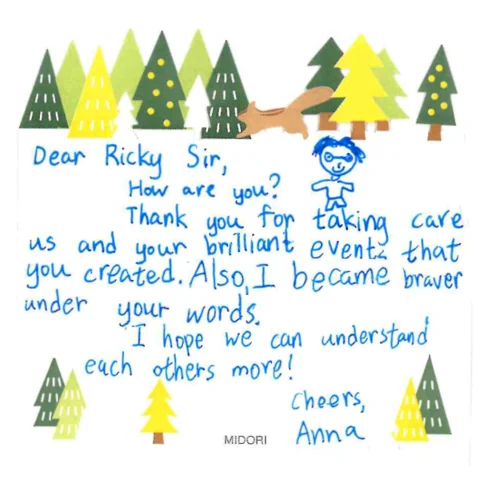 Dear Ricky Sir,
How are you?
Thank you for taking care
us and your brilliant events that
you created. Also, I became braver
under your words.
I hope we can understand
each others more!
Cheers,
Anna
MIDORI